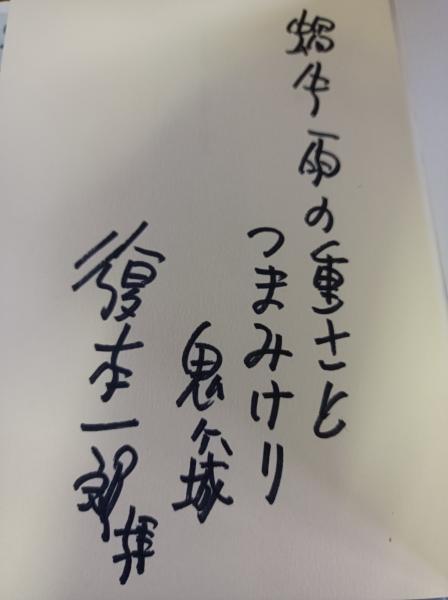 蝸牛雨の重さと
つまみけり
鬼ヶ城
復本一郎拝